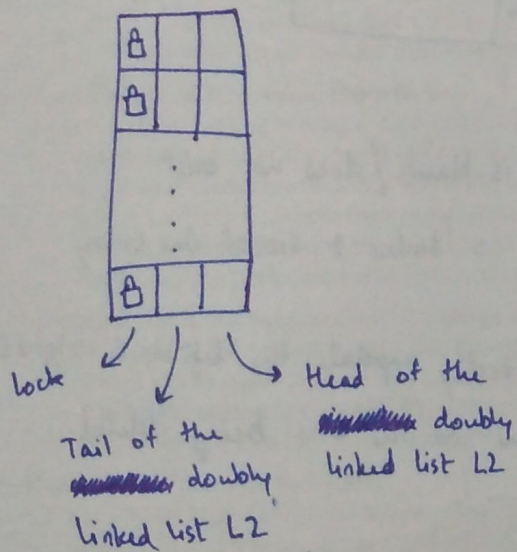 lock
Tail of the
doubly
linked list L2
Head of the
doubly
linked list L2